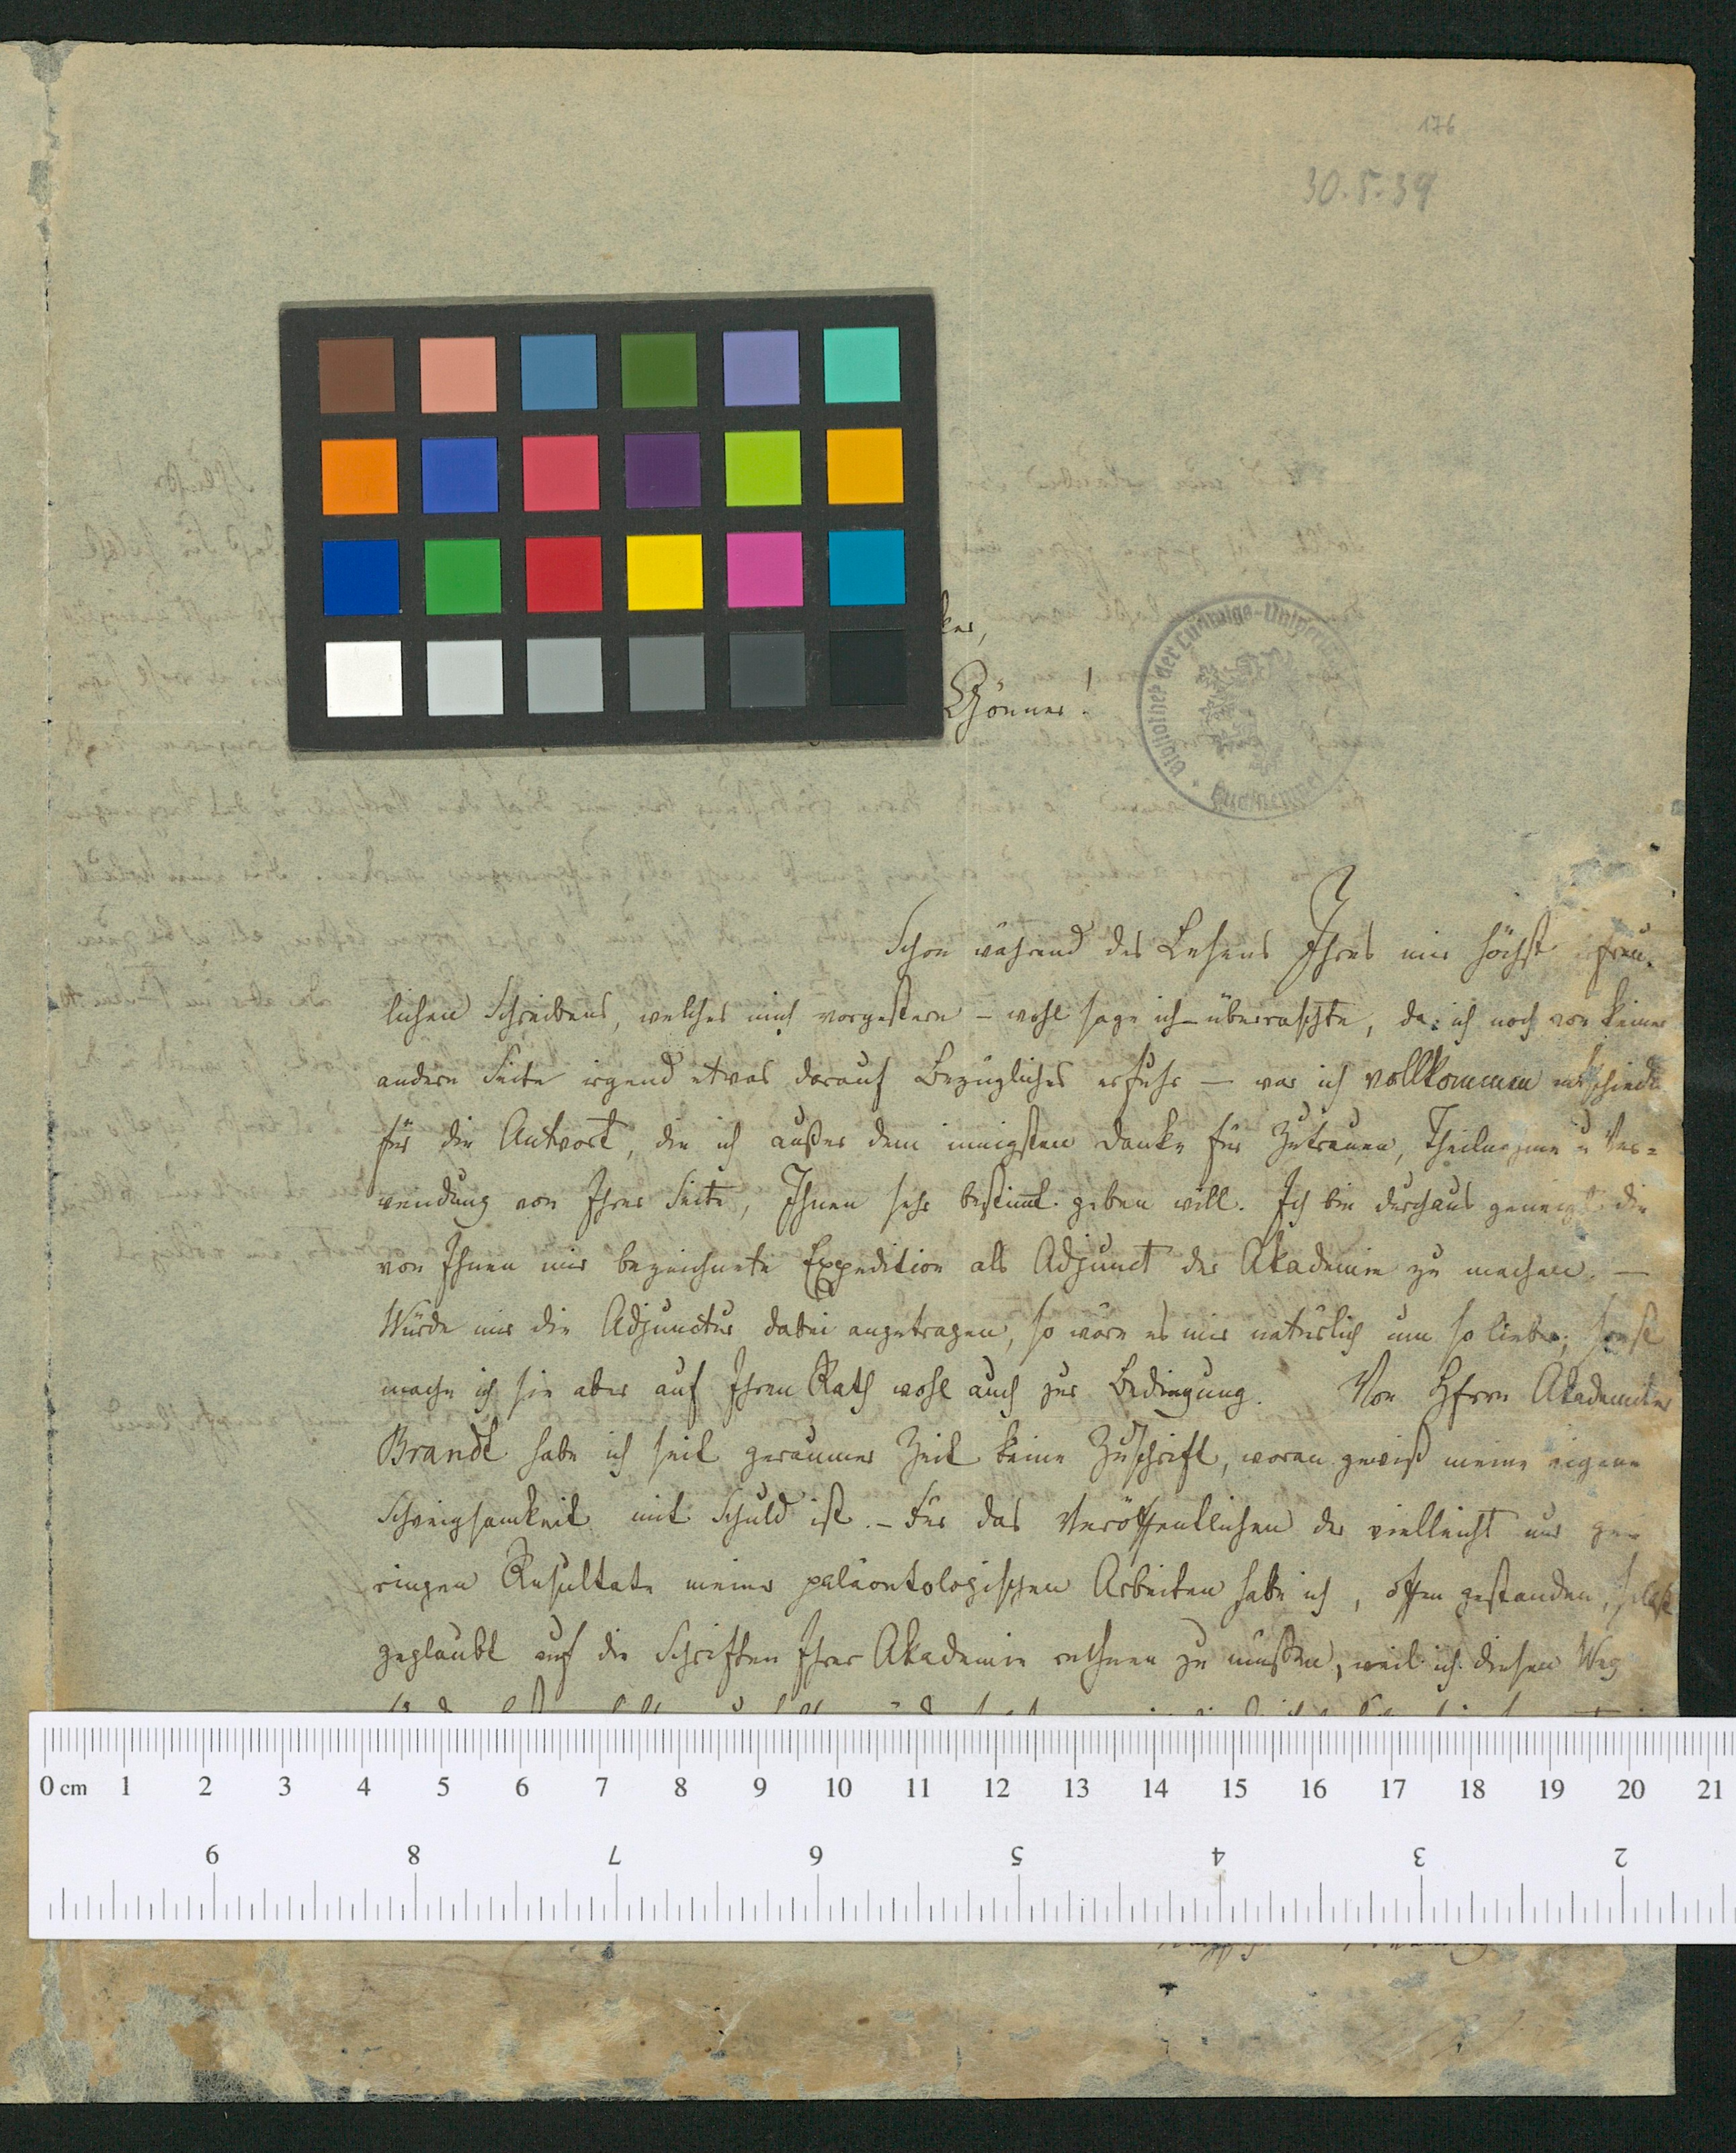 176
30.5.39
ker,
Gönner!
Bibliothek der Ludwigs-Univers
Schon während des Lesens Ihres mir höchst erfreu-
lichen Schreibens, welches mich vorgestern – wohl sage ich – überraschte, da ich noch von keiner
andern Seite irgend etwas darauf Bezügliches erfuhr – war ich vollkommen entschieden
für die Antwort, die ich außer dem innigsten Danke für Zutrauen, Theilnahme u Ver=
wendung von Ihrer Seite, Ihnen sehr bestimt geben will. Ich bin durchaus geneigt die
von Ihnen mir bezeichnete Expedition als Adjunct der Akademie zu machen. –
Würde mir die Adjunctur dabei angetragen, so wäre es mir natürlich um so lieber; sonst
mache ich sie aber auf Ihren Rath wohl auch zur Bedingung. Von Herrn Akademiker
Brandt habe ich seit geraumer Zeit keine Zuschrift, woran gewiß meine eigene
Schweigsamkeit mit Schuld ist. – Für das Veröffentlichen der vielleicht nur ge-
ringen Resultate meiner paläontologischen Arbeiten habe ich, offen gestanden, selbst
geglaubt auf die Schriften Ihrer Akademie rechnen zu müssen, weil ich diesen Weg
0 cm 1 2 3 4 5 6 7 8 9 10 11 12 13 14 15 16 17 18 19 20 21
9 8 7 6 5 4 3 2